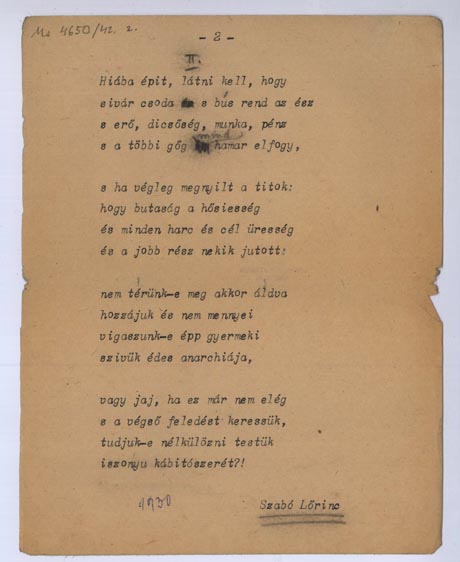 Ms 4650/42. 2.
- 2 -
II.
Hiába épit, látni kell, hogy
sivár csoda s bús rend az ész
s erő, dicsőség, munka, pénz
s a többi gőg mind hamar elfogy,
s ha végleg megnyilt a titok:
hogy butaság a hősiesség
és minden harc és cél üresség
és a jobb rész nekik jutott:
nem térünk-e meg akkor áldva
hozzájuk és nem mennyei
vigaszunk-e épp gyermeki
szivük édes anarchiája,
vagy jaj, ha ez már nem elég
s a végső feledést keressük,
tudjuk-e nélkülözni testük
iszonyu kábitószerét?!
1930
Szabó Lőrinc